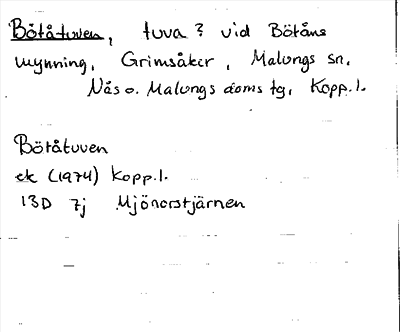 Bötåtuven, tuva? vid Bötåns
mynning, Grimsåker, Malungs sn,
Nås o. Malungs doms tg, Kopp.l.
Bötåtuven
ek (1974) Kopp.l.
13D 7j Mjönorstjärnen